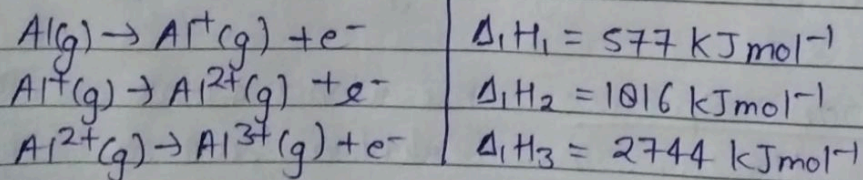 Al(g) → Al⁺(g) + e⁻ | Δ₁H₁ = 577 kJ mol⁻¹
Al⁺(g) → Al²⁺(g) + e⁻ | Δ₁H₂ = 1816 kJ mol⁻¹
Al²⁺(g) → Al³⁺(g) + e⁻ | Δ₁H₃ = 2744 kJ mol⁻¹